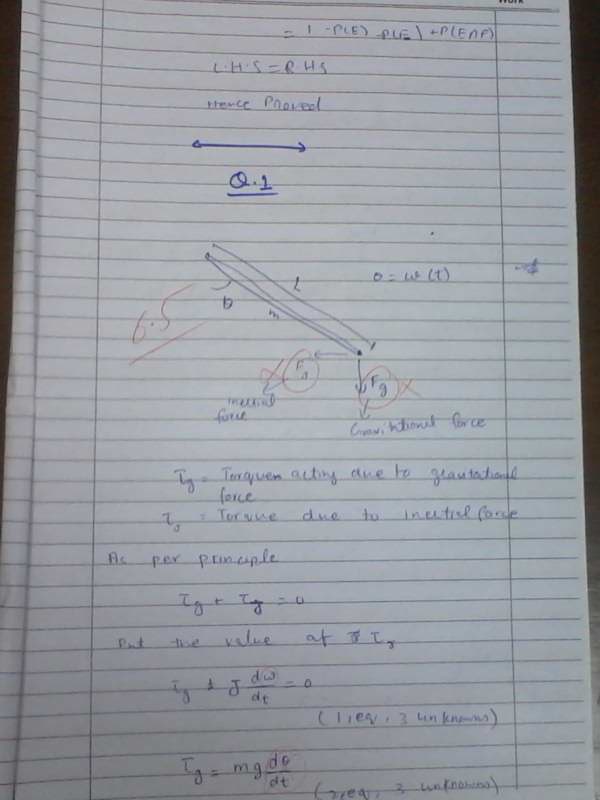 Work
= 1 - P(E) - P(F) + P(E∩F)
L.H.S = R.H.S
Hence Proved
Q.1
L
θ = ω(t)
θ
m
6.5
F
Fg
Inertial force
Gravitational force
τg = Torque acting due to gravitational force
τJ = Torque due to inertial force
As per principle
τg + τJ = 0
Put the value of τJ
τg + J dω/dt = 0
(1, eq, 3 unknowns)
τg = mg dθ/dt
(2, eq, 3 unknowns)